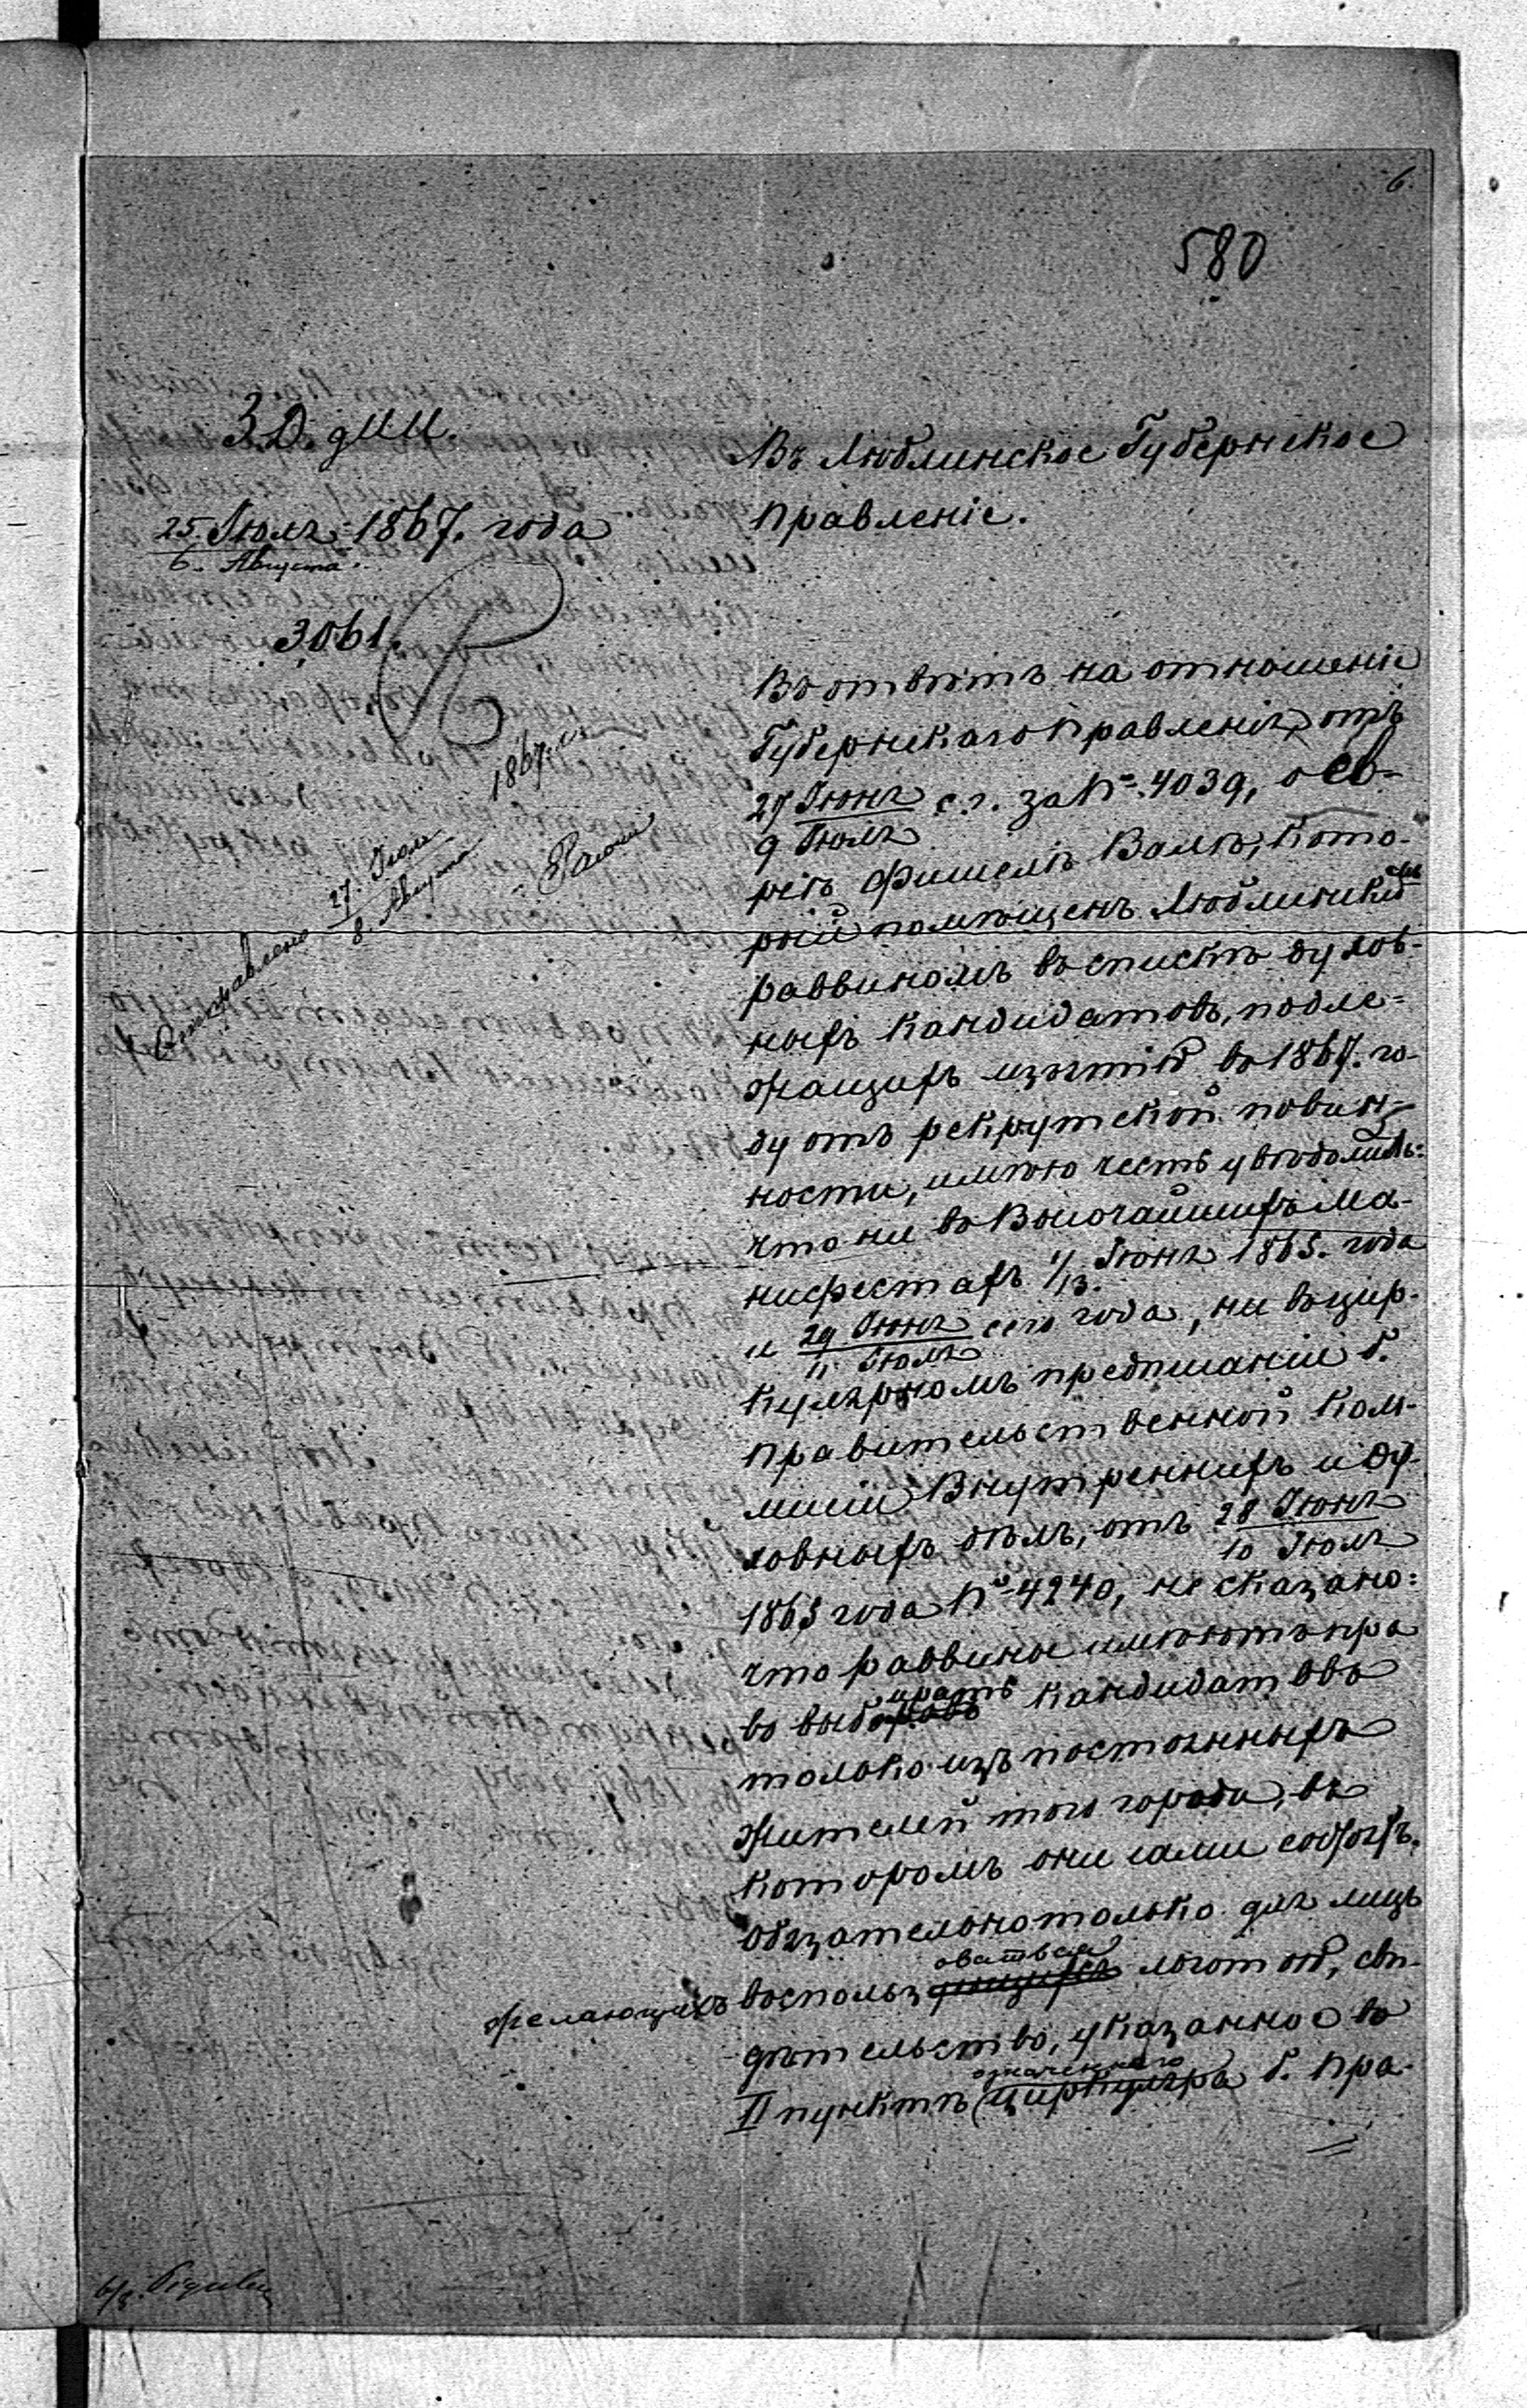 6.
580
З.Д. дии.
25. Іюля 1867. года
6. Августа.
3061.
Отправлено 27. Іюля 1867 г.
8. Августа
Въ Люблинское Губернское
Правленіе.
Въ отвѣтъ на отношеніе
Губернскаго Правленія, отъ
27 Іюня с. г. за № 4039, о Ев-
9 Іюля
реѣ Фишелѣ Валѣ, кото-
рый помѣщенъ Люблинскимъ
раввиномъ въ спискѣ духов-
ныхъ кандидатовъ, подле-
жащихъ изъятію въ 1867. го-
ду отъ рекрутской повин-
ности, имѣю честь увѣдомить:
что ни въ Высочайшихъ Ма-
нифестахъ 1/13. Іюня 1865. года
и 29 Іюня сего года, ни въ цир-
11 Іюля
кулярномъ предписаніи б.
Правительственной Ком-
мисіи Внутреннихъ и Ду-
ховныхъ дѣлъ, отъ 28 Іюня
10 Іюля
1865 года № 4240, не сказано:
что раввины имѣютъ пра
во выбирать кандидатовъ
только изъ постоянныхъ
жителей того города, въ
которомъ они сами состоятъ.
Обязательно только для лицъ
желающихъ воспользоваться льготою, сви-
дѣтельство, указанное въ
II пунктѣ означеннаго циркуляра б. Пра-